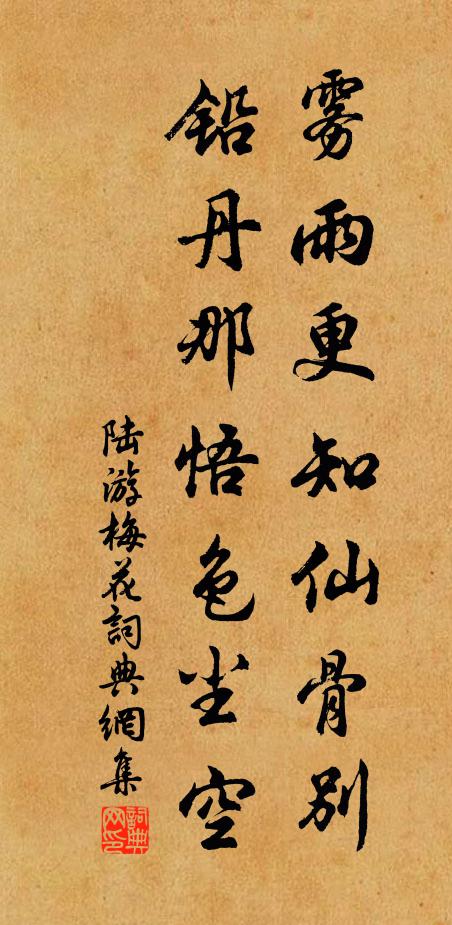 雾雨更知仙骨别
铅丹那悟色尘空
陆游梅花詞典網集
詞典网印